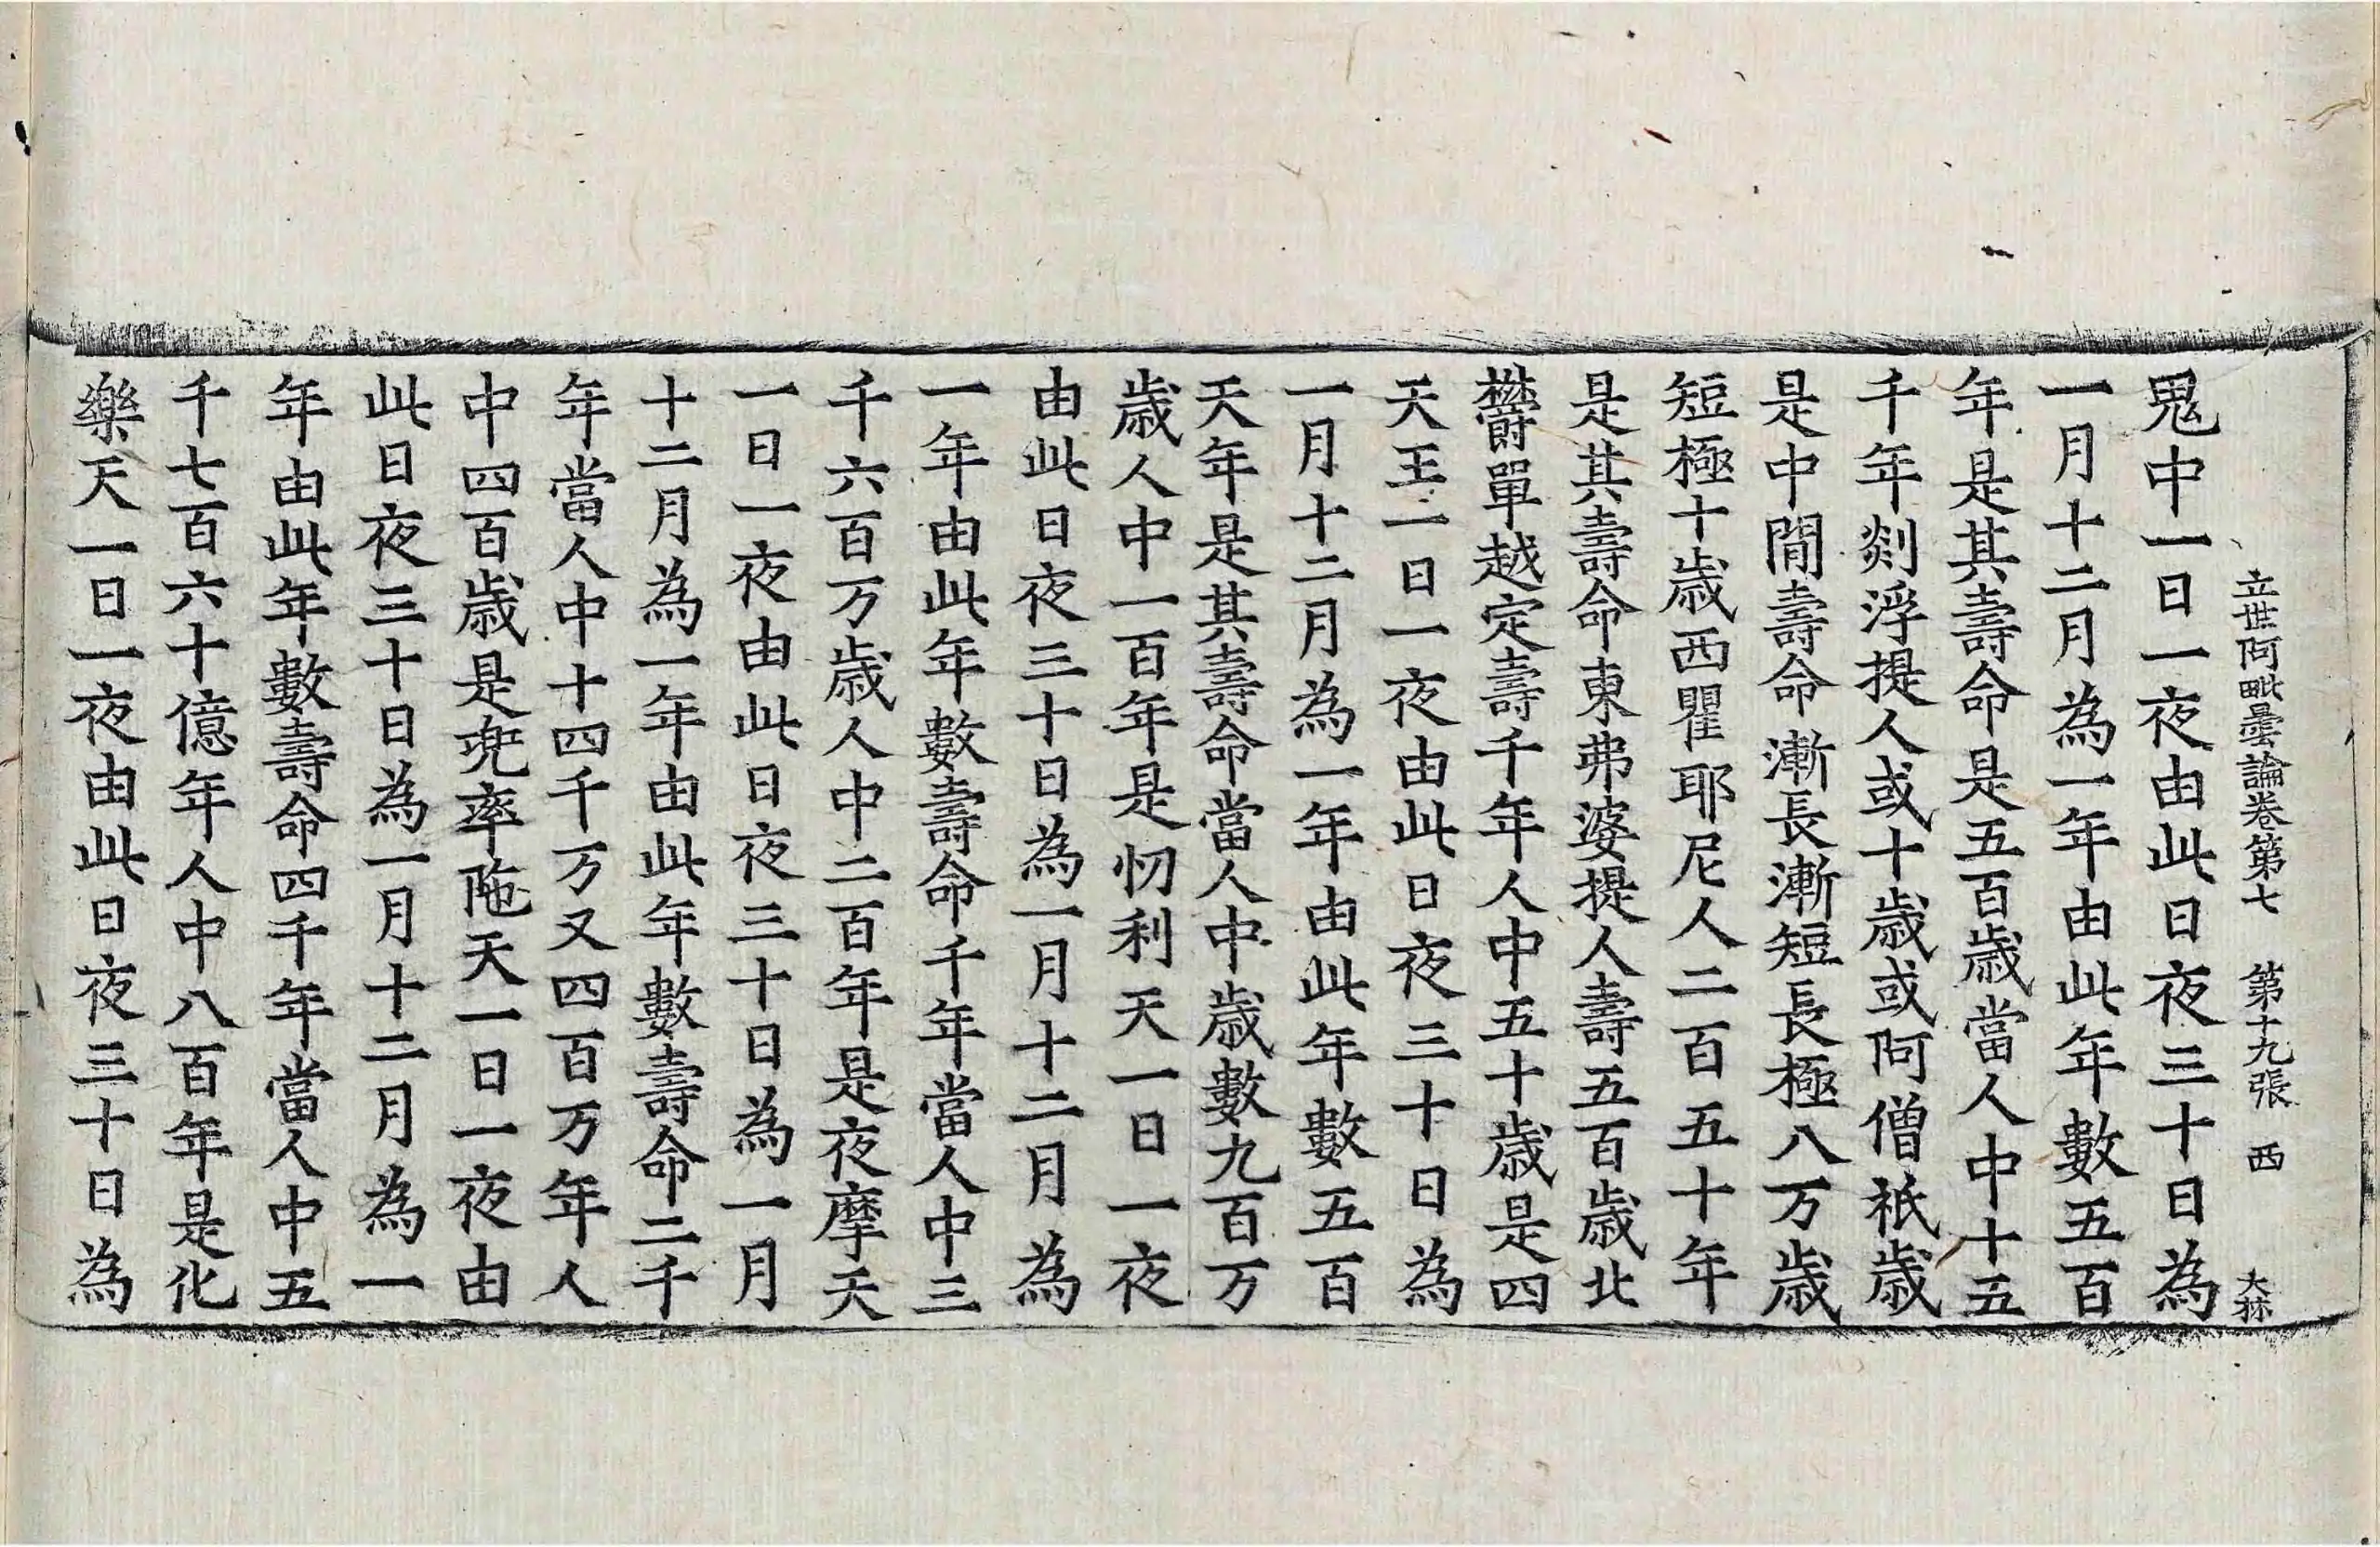 立世阿毗曇論卷第七 第十九張 西 大
鬼中一日一夜由此日夜三十日為
一月十二月為一年由此年數五百
年是其壽命是五百歲當人中十五
千年剡浮提人或十歲或阿僧祇歲
是中間壽命漸長漸短長極八万歲
短極十歲西瞿耶尼人二百五十年
是其壽命東弗婆提人壽五百歲北
欝單越定壽千年人中五十歲是四
天王一日一夜由此日夜三十日為
一月十二月為一年由此年數五百
天年是其壽命當人中歲數九百万
歲人中一百年是忉利天一日一夜
由此日夜三十日為一月十二月為
一年由此年數壽命千年當人中三
千六百万歲人中二百年是夜摩天
一日一夜由此日夜三十日為一月
十二月為一年由此年數壽命二千
年當人中十四千万又四百万年人
中四百歲是兜率陁天一日一夜由
此日夜三十日為一月十二月為一
年由此年數壽命四千年當人中五
千七百六十億年人中八百年是化
樂天一日一夜由此日夜三十日為